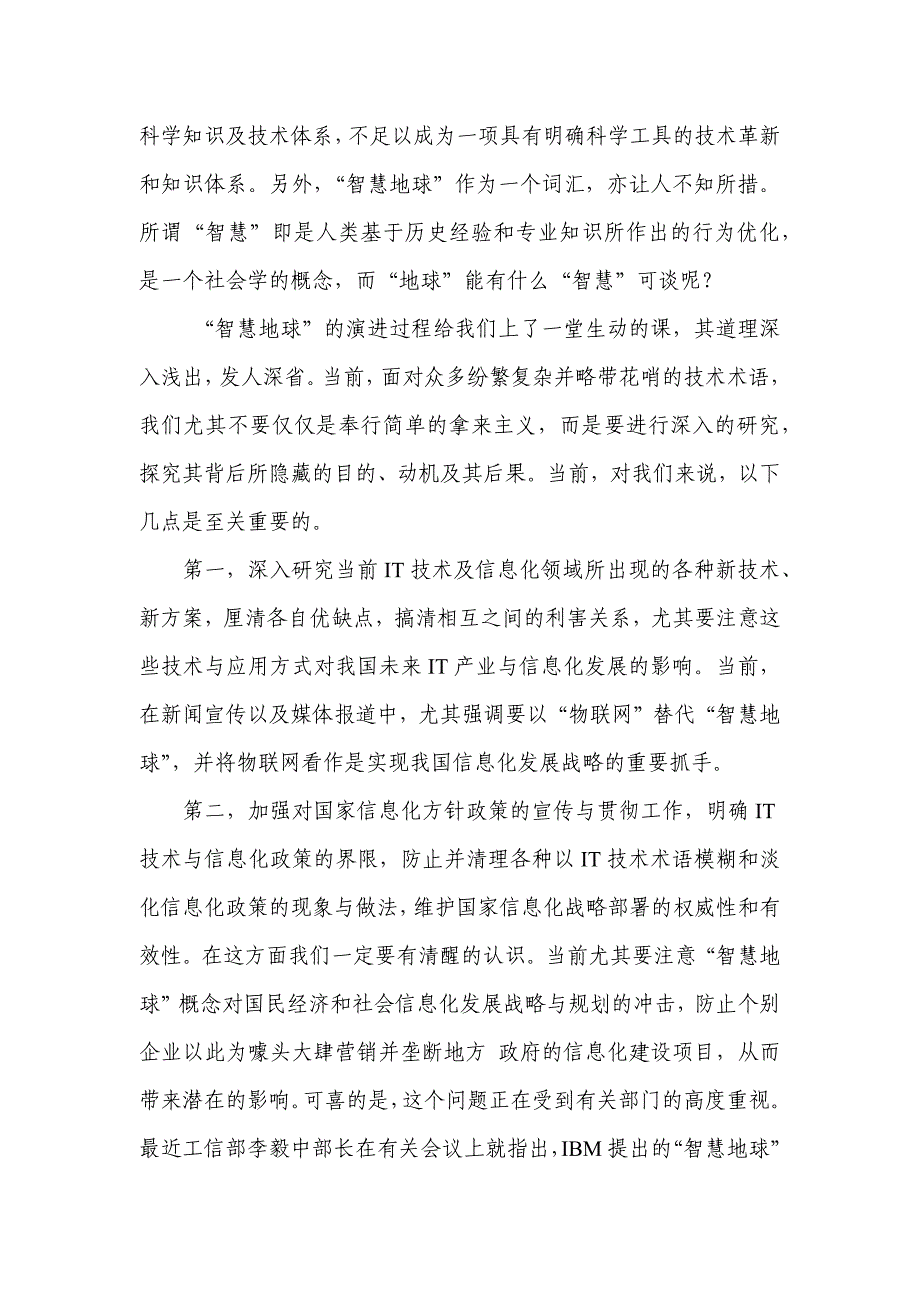 科学知识及技术体系，不足以成为一项具有明确科学工具的技术革新
和知识体系。另外，“智慧地球”作为一个词汇，亦让人不知所措。
所谓“智慧”即是人类基于历史经验和专业知识所作出的行为优化，
是一个社会学的概念，而“地球”能有什么“智慧”可谈呢？
“智慧地球”的演进过程给我们上了一堂生动的课，其道理深
入浅出，发人深省。当前，面对众多纷繁复杂并略带花哨的技术术语，
我们尤其不要仅仅是奉行简单的拿来主义，而是要进行深入的研究，
探究其背后所隐藏的目的、动机及其后果。当前，对我们来说，以下
几点是至关重要的。
第一，深入研究当前 IT 技术及信息化领域所出现的各种新技术、
新方案，厘清各自优缺点，搞清相互之间的利害关系，尤其要注意这
些技术与应用方式对我国未来 IT 产业与信息化发展的影响。当前，
在新闻宣传以及媒体报道中，尤其强调要以“物联网”替代“智慧地
球”，并将物联网看作是实现我国信息化发展战略的重要抓手。
第二，加强对国家信息化方针政策的宣传与贯彻工作，明确 IT
技术与信息化政策的界限，防止并清理各种以 IT 技术术语模糊和淡
化信息化政策的现象与做法，维护国家信息化战略部署的权威性和有
效性。在这方面我们一定要有清醒的认识。当前尤其要注意“智慧地
球”概念对国民经济和社会信息化发展战略与规划的冲击，防止个别
企业以此为噱头大肆营销并垄断地方 政府的信息化建设项目，从而
带来潜在的影响。可喜的是，这个问题正在受到有关部门的高度重视。
最近工信部李毅中部长在有关会议上就指出，IBM 提出的“智慧地球”